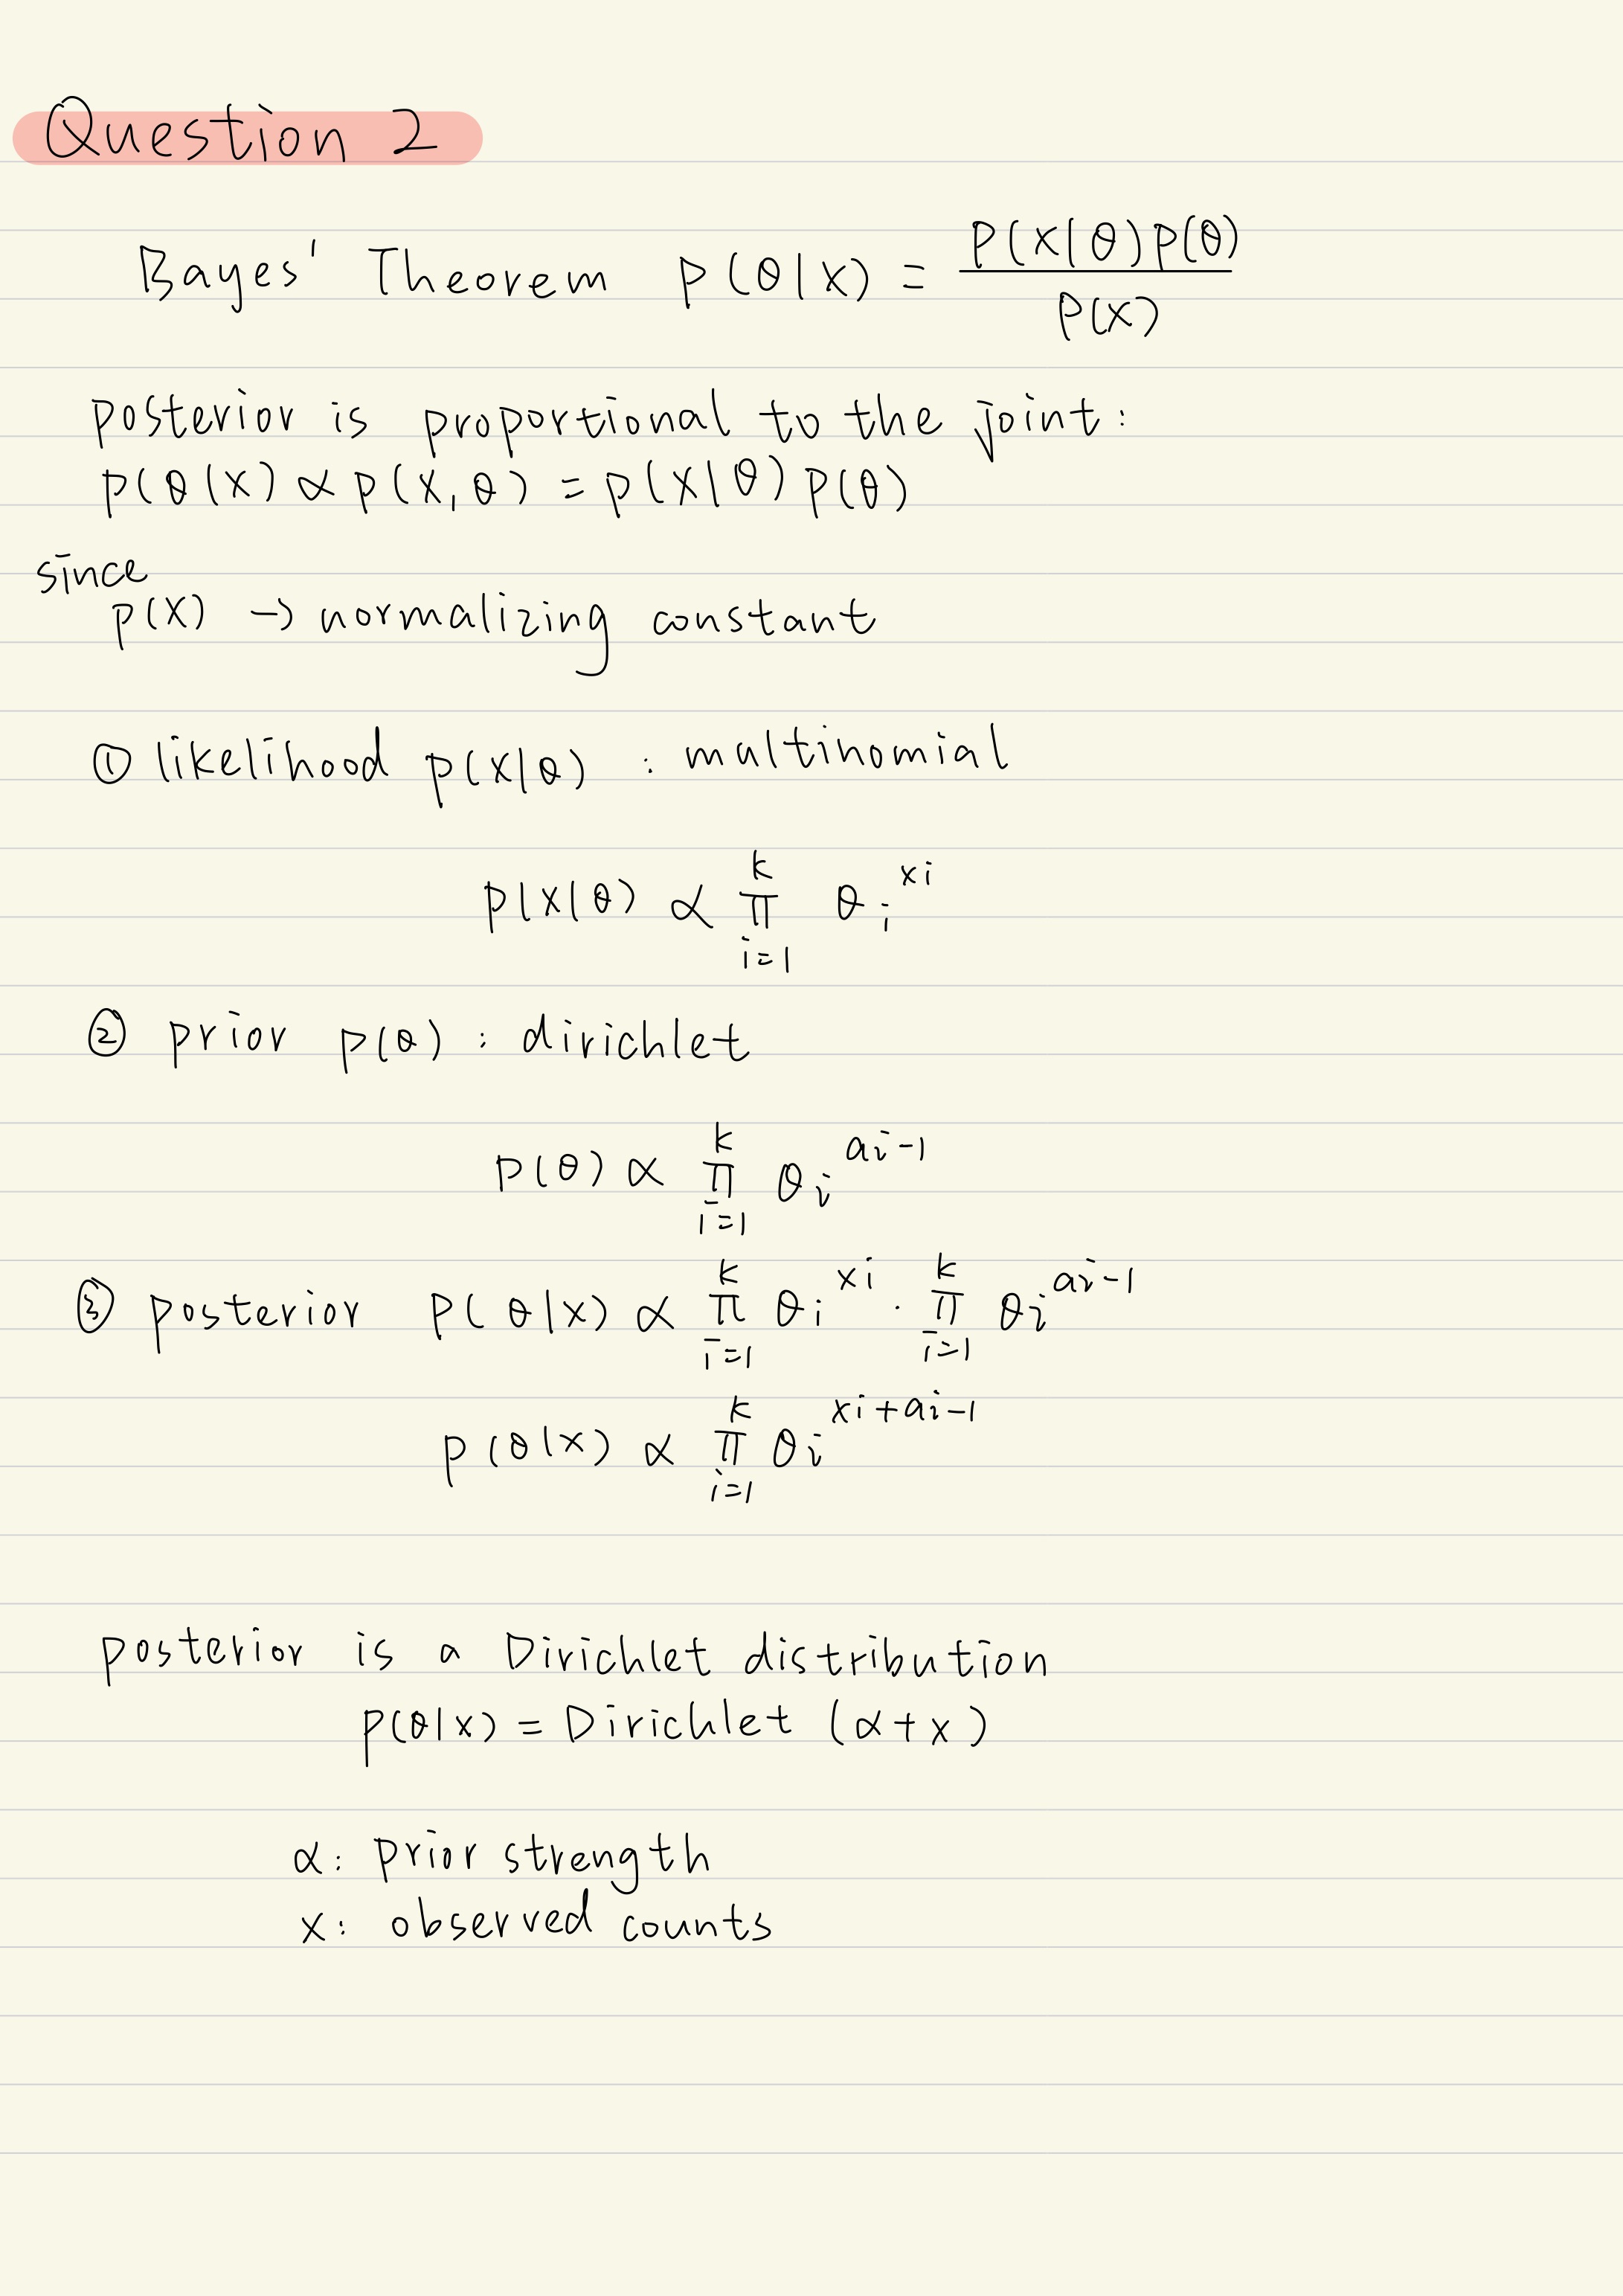 Question 2
Bayes' Theorem p(θ|x) = p(x|θ)p(θ) / p(x)
posterior is proportional to the joint:
p(θ|x) ∝ p(x,θ) = p(x|θ) p(θ)
since
p(x) → normalizing constant
① likelihood p(x|θ) : multinomial
p(x|θ) ∝ ∏_{i=1}^{k} θ_i^{xi}
② prior p(θ) : dirichlet
p(θ) ∝ ∏_{i=1}^{k} θ_i^{ai-1}
③ posterior p(θ|x) ∝ ∏_{i=1}^{k} θi^{xi} · ∏_{i=1}^{k} θi^{ai-1}
p(θ|x) ∝ ∏_{i=1}^{k} θi^{xi+ai-1}
posterior is a Dirichlet distribution
p(θ|x) = Dirichlet (α+x)
α: prior strength
x: observed counts